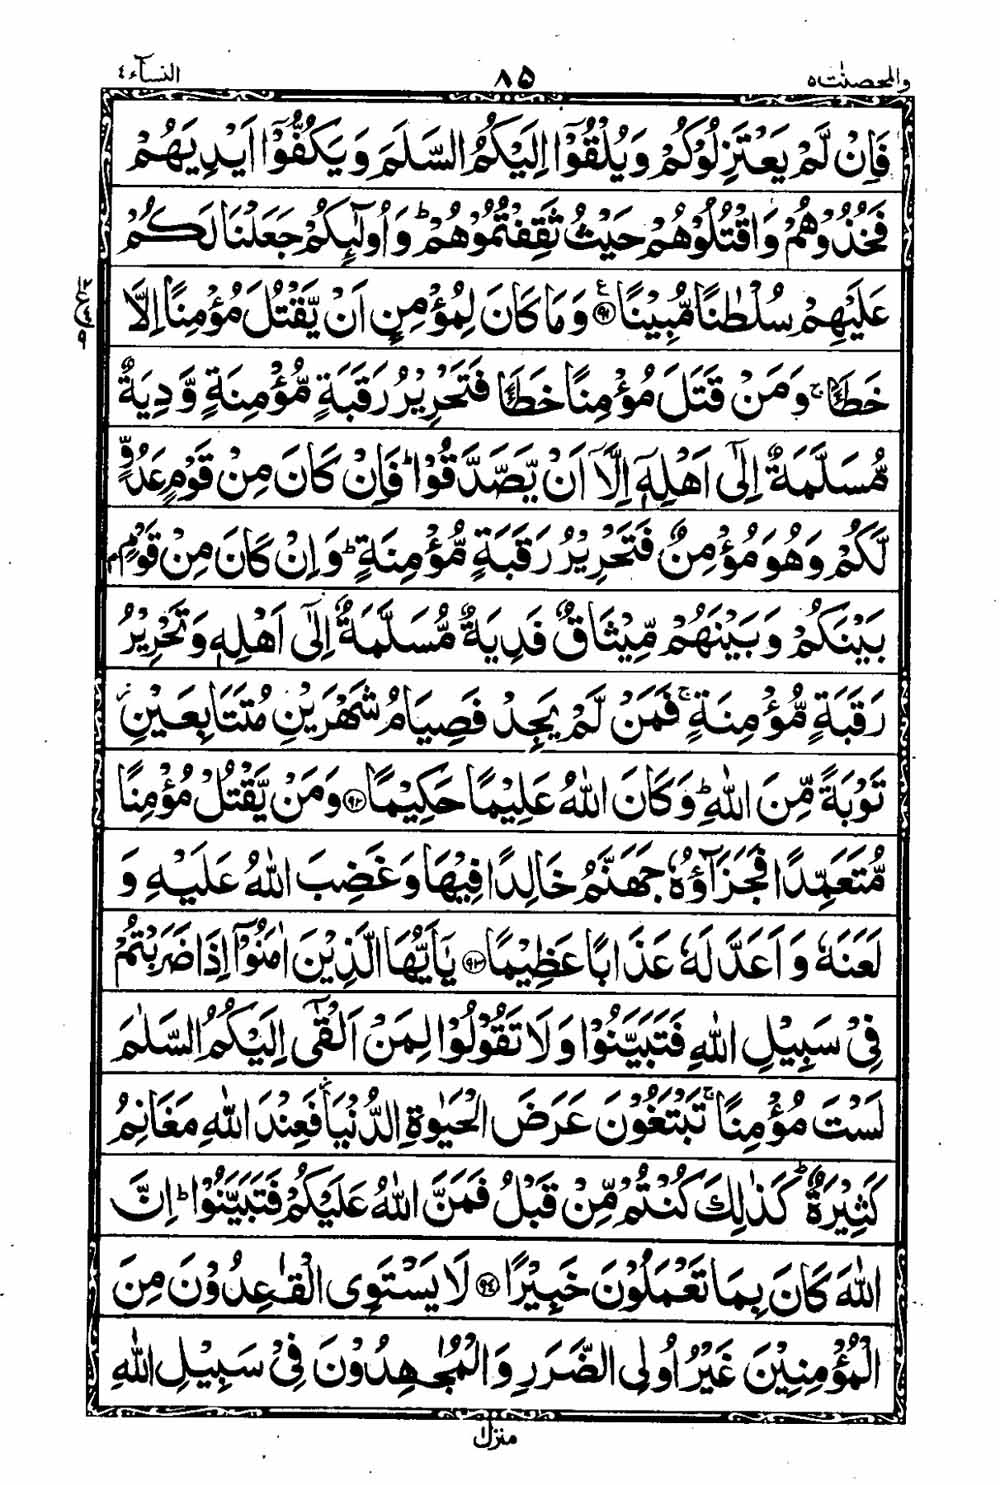 والمحصنٰت ٥ ٨٥ النسآء ٤
فَاِنْ لَّمْ يَعْتَزِلُوْكُمْ وَيُلْقُوْٓا اِلَيْكُمُ السَّلَمَ وَيَكُفُّوْٓا اَيْدِيَهُمْ
فَخُذُوْهُمْ وَاقْتُلُوْهُمْ حَيْثُ ثَقِفْتُمُوْهُمْ ؕ وَاُولٰٓئِكُمْ جَعَلْنَا لَكُمْ
عَلَيْهِمْ سُلْطٰنًا مُّبِيْنًا ﴿٩١﴾ وَمَا كَانَ لِمُؤْمِنٍ اَنْ يَّقْتُلَ مُؤْمِنًا اِلَّا
خَطَـًٔا ۚ وَمَنْ قَتَلَ مُؤْمِنًا خَطَـًٔا فَتَحْرِيْرُ رَقَبَةٍ مُّؤْمِنَةٍ وَّدِيَةٌ
مُّسَلَّمَةٌ اِلٰٓى اَهْلِهٖٓ اِلَّآ اَنْ يَّصَّدَّقُوْا ؕ فَاِنْ كَانَ مِنْ قَوْمٍ عَدُوٍّ
لَّكُمْ وَهُوَ مُؤْمِنٌ فَتَحْرِيْرُ رَقَبَةٍ مُّؤْمِنَةٍ ؕ وَاِنْ كَانَ مِنْ قَوْمٍۭ
بَيْنَكُمْ وَبَيْنَهُمْ مِّيْثَاقٌ فَدِيَةٌ مُّسَلَّمَةٌ اِلٰٓى اَهْلِهٖ وَتَحْرِيْرُ
رَقَبَةٍ مُّؤْمِنَةٍ ۚ فَمَنْ لَّمْ يَجِدْ فَصِيَامُ شَهْرَيْنِ مُتَتَابِعَيْنِ ؗ
تَوْبَةً مِّنَ اللّٰهِ ؕ وَكَانَ اللّٰهُ عَلِيْمًا حَكِيْمًا ﴿٩٢﴾ وَمَنْ يَّقْتُلْ مُؤْمِنًا
مُّتَعَمِّدًا فَجَزَآؤُهٗ جَهَنَّمُ خَالِدًا فِيْهَا وَغَضِبَ اللّٰهُ عَلَيْهِ وَ
لَعَنَهٗ وَاَعَدَّ لَهٗ عَذَابًا عَظِيْمًا ﴿٩٣﴾ يٰٓاَيُّهَا الَّذِيْنَ اٰمَنُوْٓا اِذَا ضَرَبْتُمْ
فِيْ سَبِيْلِ اللّٰهِ فَتَبَيَّنُوْا وَلَا تَقُوْلُوْا لِمَنْ اَلْقٰٓى اِلَيْكُمُ السَّلٰمَ
لَسْتَ مُؤْمِنًا ۚ تَبْتَغُوْنَ عَرَضَ الْحَيٰوةِ الدُّنْيَا ؗ فَعِنْدَ اللّٰهِ مَغَانِمُ
كَثِيْرَةٌ ؕ كَذٰلِكَ كُنْتُمْ مِّنْ قَبْلُ فَمَنَّ اللّٰهُ عَلَيْكُمْ فَتَبَيَّنُوْا ؕ اِنَّ
اللّٰهَ كَانَ بِمَا تَعْمَلُوْنَ خَبِيْرًا ﴿٩٤﴾ لَا يَسْتَوِى الْقٰعِدُوْنَ مِنَ
الْمُؤْمِنِيْنَ غَيْرُ اُولِى الضَّرَرِ وَالْمُجٰهِدُوْنَ فِيْ سَبِيْلِ اللّٰهِ
منزل ١